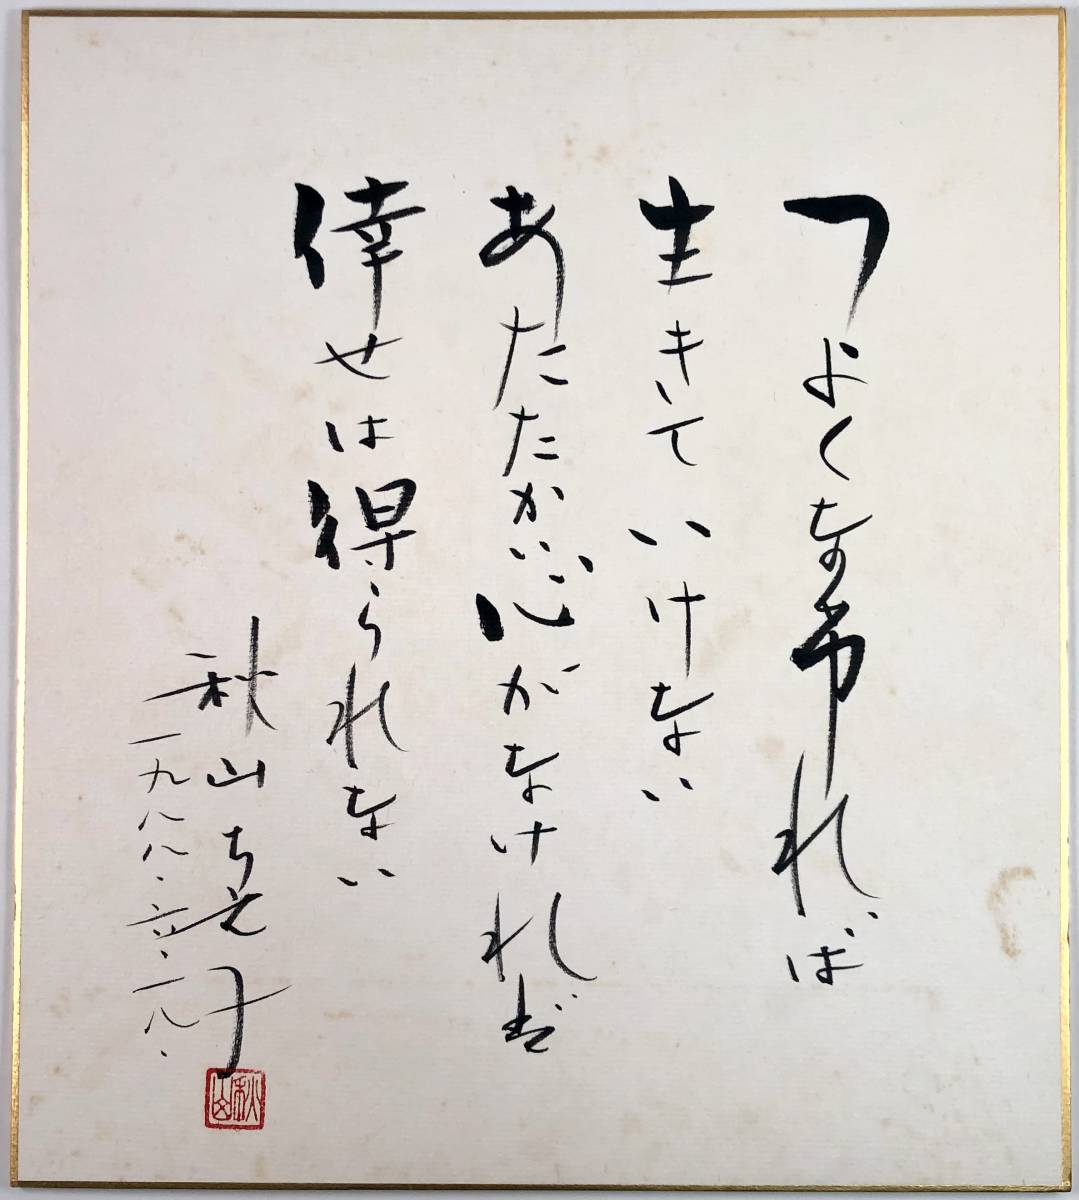 つよくなければ
生きていけない
あたたかい心がなければ
倖せは得られない
秋山ちえ子
一九八八・六・一八・
秋山